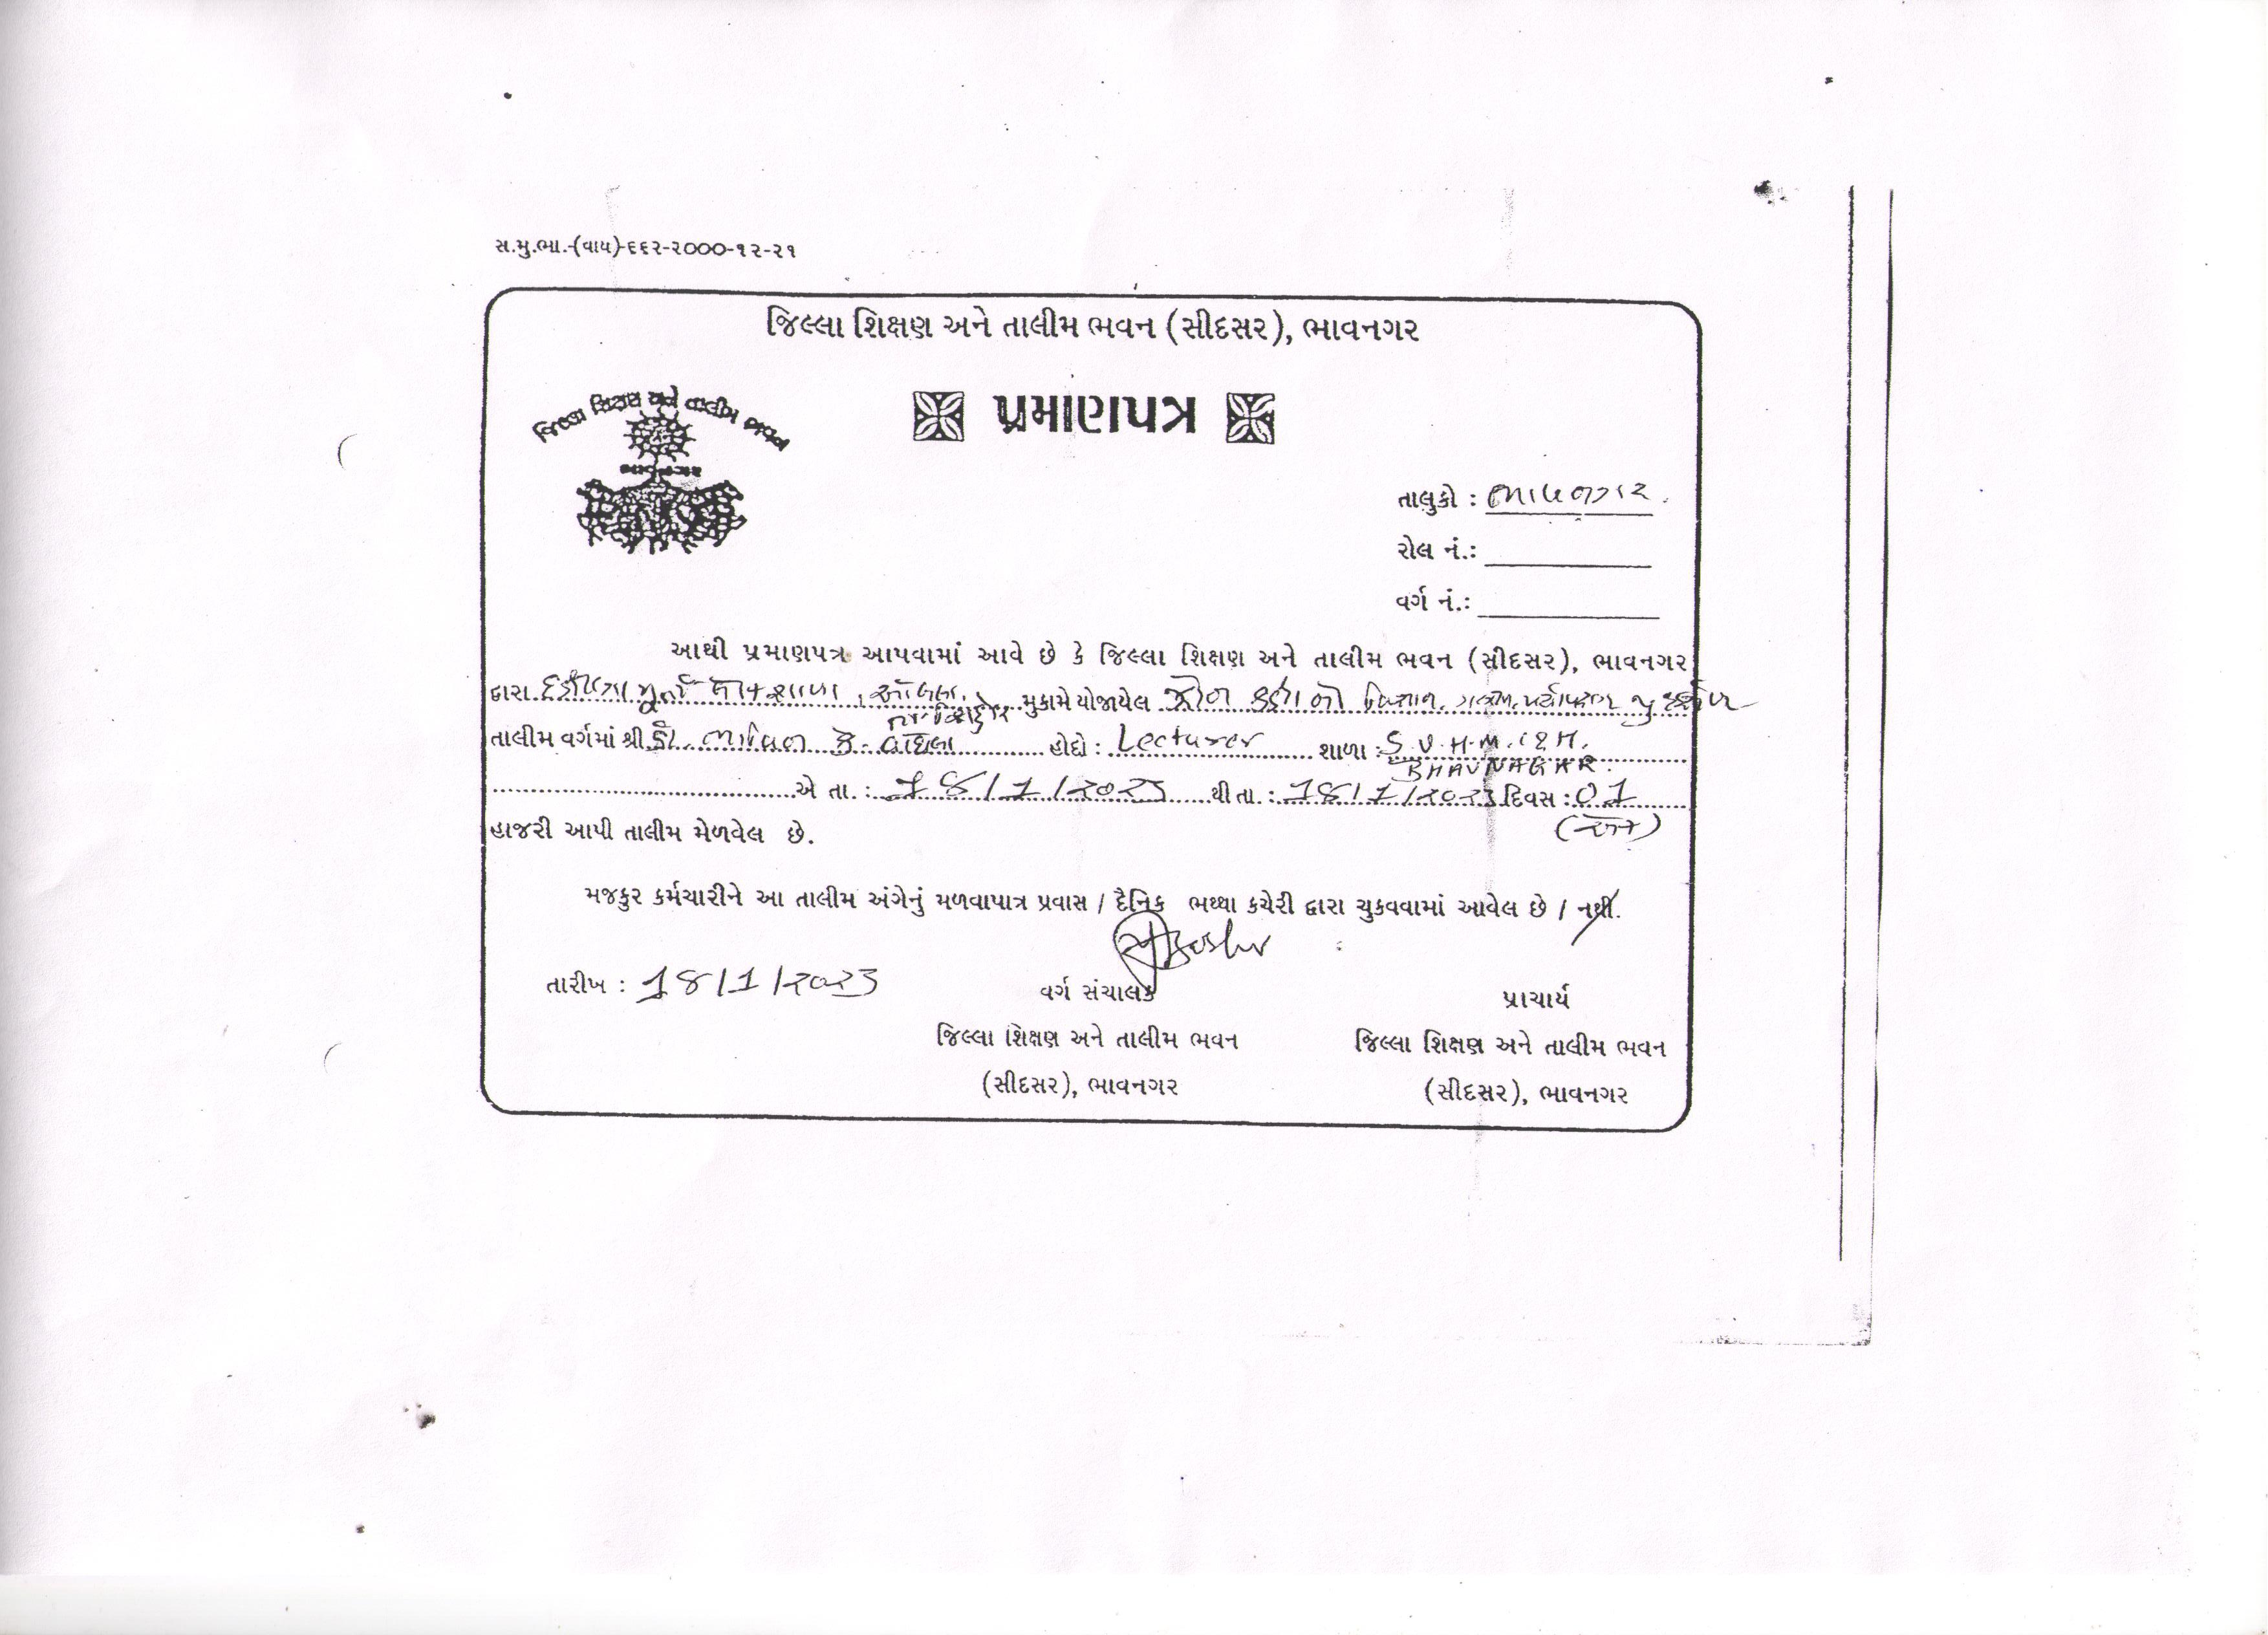 સ.મુ.ભા.-(વાય)-૬૬૨-૨૦૦૦-૧૨-૨૧
જિલ્લા શિક્ષણ અને તાલીમ ભવન (સીદસર), ભાવનગર
જિલ્લા શિક્ષણ અને તાલીમ ભવન
પ્રમાણપત્ર
તાલુકો : ભાવનગર.
રોલ નં.:
વર્ગ નં.:
આથી પ્રમાણપત્ર આપવામાં આવે છે કે જિલ્લા શિક્ષણ અને તાલીમ ભવન (સીદસર), ભાવનગર
દ્વારા મૂર્તિ લોકશાળા, મુકામે યોજાયેલ ઝોન કક્ષાનો વિજ્ઞાન, ગણિત, પર્યાવરણ
તાલીમ વર્ગમાં શ્રી ડૉ. ભાવિન કે. વાઘેલા હોદ્દો : Lecturer શાળા : S.V.H.M.
BHAVNAGAR.
એ તા. : 18/1/2023 થી તા. : 18/1/2023 દિવસ : 01
હાજરી આપી તાલીમ મેળવેલ છે. (એક)
મજકુર કર્મચારીને આ તાલીમ અંગેનું મળવાપાત્ર પ્રવાસ / દૈનિક ભથ્થા કચેરી દ્વારા ચુકવવામાં આવેલ છે / નથી.
તારીખ : 18/1/2023
વર્ગ સંચાલક
પ્રાચાર્ય
જિલ્લા શિક્ષણ અને તાલીમ ભવન
જિલ્લા શિક્ષણ અને તાલીમ ભવન
(સીદસર), ભાવનગર
(સીદસર), ભાવનગર